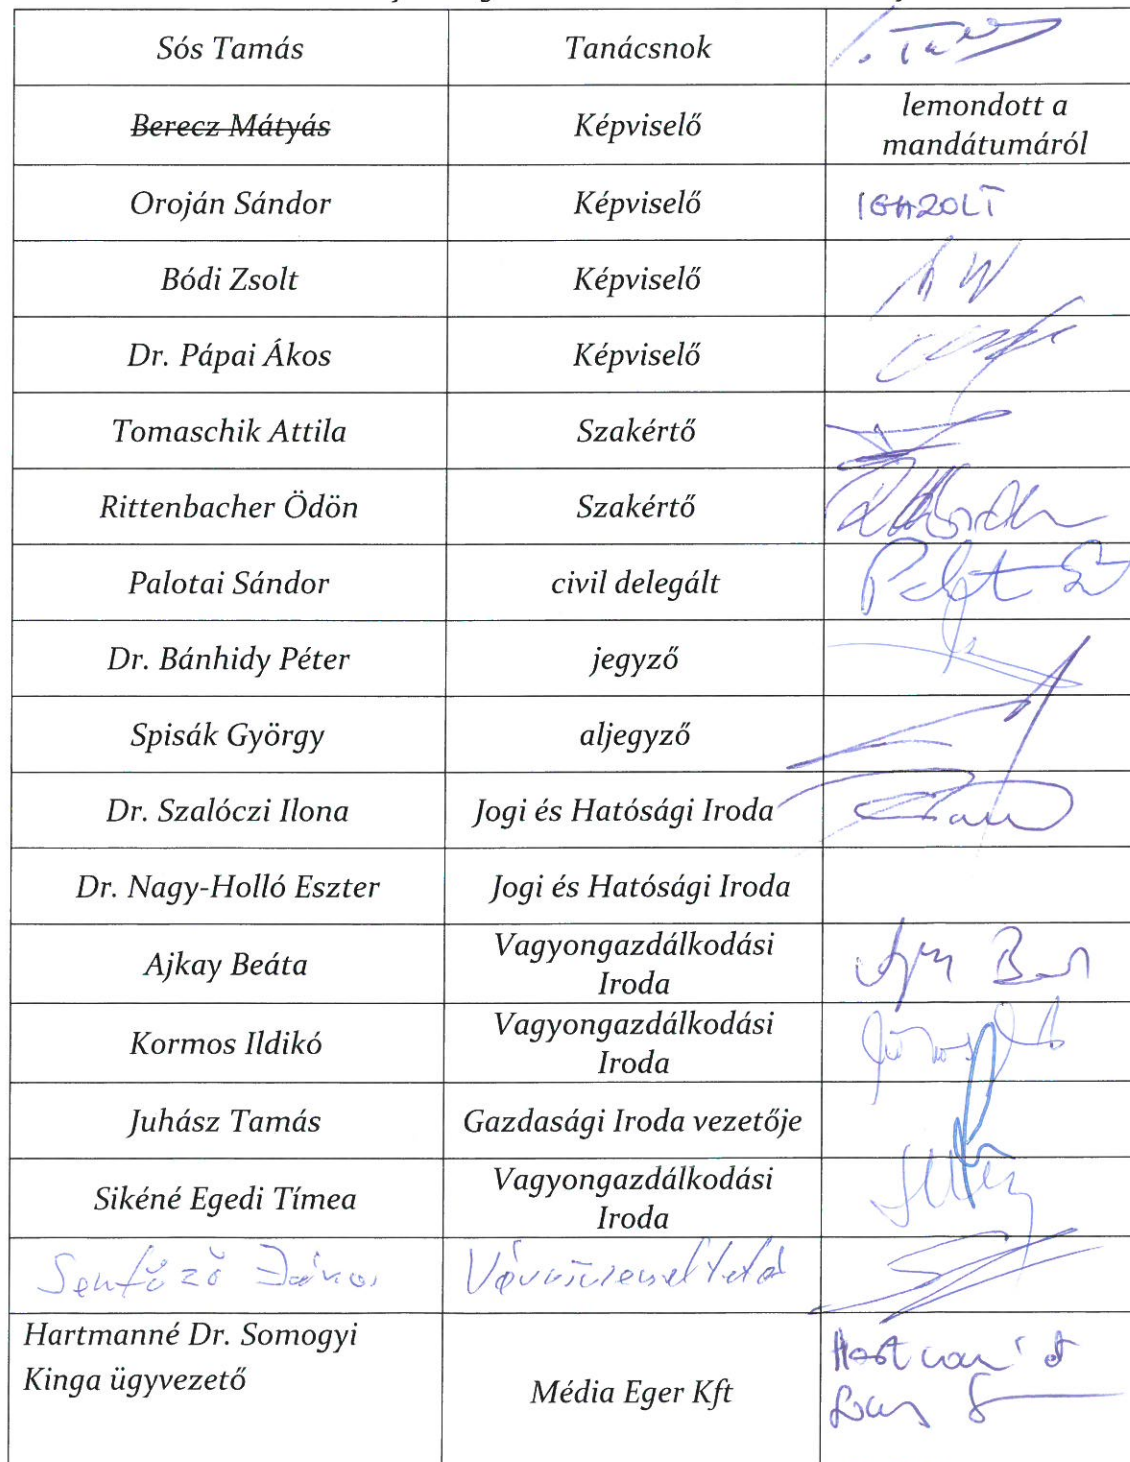 Sós Tamás Tanácsnok
Berecz Mátyás Képviselő lemondott a
mandátumáról
Oroján Sándor Képviselő IGAZOLT
Bódi Zsolt Képviselő
Dr. Pápai Ákos Képviselő
Tomaschik Attila Szakértő
Rittenbacher Ödön Szakértő
Palotai Sándor civil delegált
Dr. Bánhidy Péter jegyző
Spisák György aljegyző
Dr. Szalóczi Ilona Jogi és Hatósági Iroda
Dr. Nagy-Holló Eszter Jogi és Hatósági Iroda
Ajkay Beáta Vagyongazdálkodási
Iroda
Kormos Ildikó Vagyongazdálkodási
Iroda
Juhász Tamás Gazdasági Iroda vezetője
Sikéné Egedi Tímea Vagyongazdálkodási
Iroda
Hartmanné Dr. Somogyi
Kinga ügyvezető
Média Eger Kft